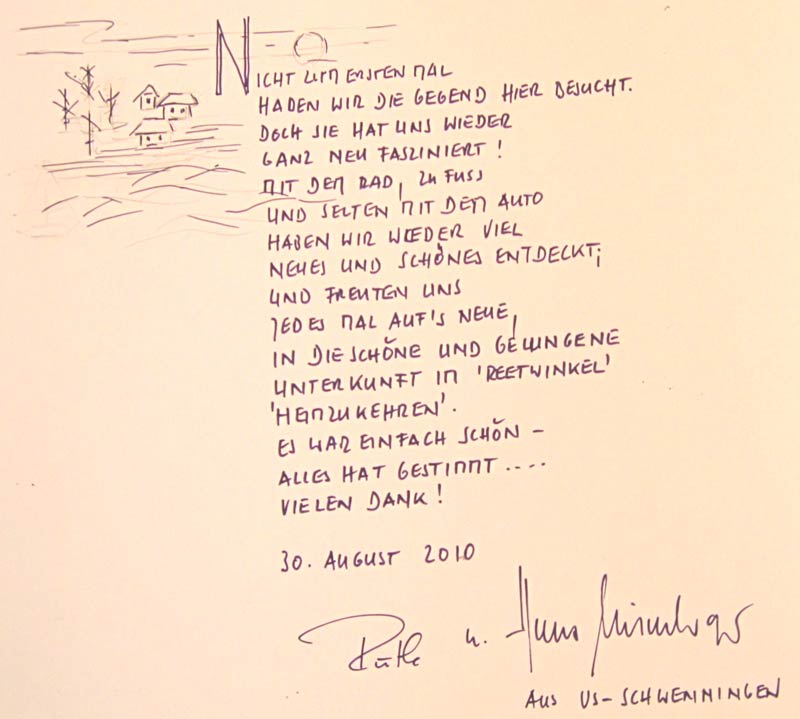 NICHT ZUM ERSTEN MAL
HABEN WIR DIE GEGEND HIER BESUCHT.
DOCH SIE HAT UNS WIEDER
GANZ NEU FASZINIERT!
MIT DEM RAD, ZU FUSS
UND SELTEN MIT DEM AUTO
HABEN WIR WIEDER VIEL
NEUES UND SCHÖNES ENTDECKT;
UND FREUTEN UNS
JEDES MAL AUF'S NEUE,
IN DIE SCHÖNE UND GELUNGENE
UNTERKUNFT IM 'REETWINKEL'
'HEIMZUKEHREN'.
ES WAR EINFACH SCHÖN –
ALLES HAT GESTIMMT....
VIELEN DANK!
30. AUGUST 2010
u. Hans
AUS VS-SCHWENNINGEN